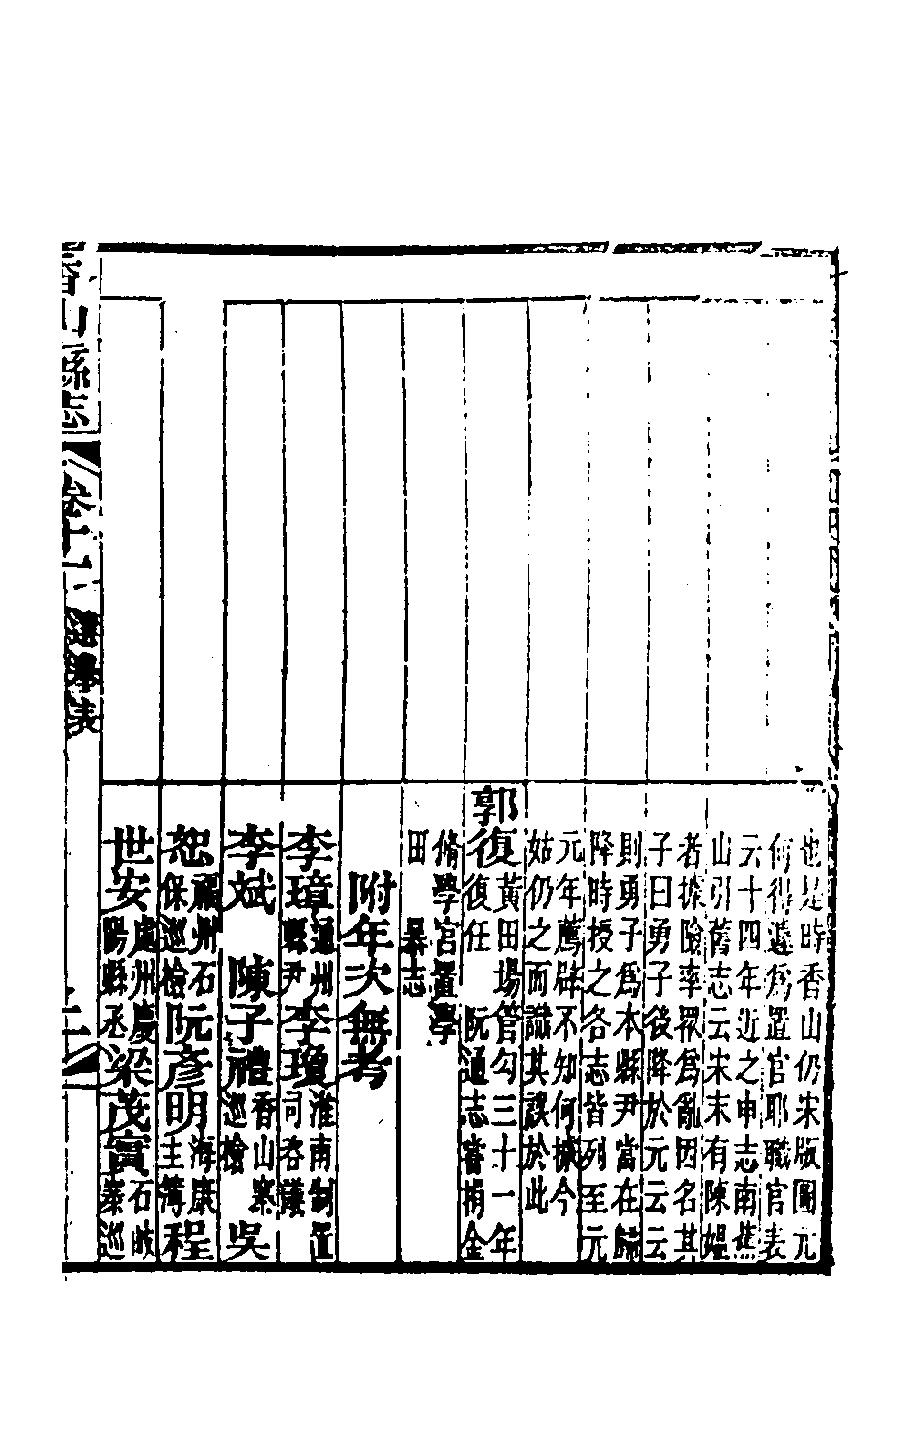 也是時香山仍宋版圖元
何得遽爲置官耶職官表
云十四年近之申志南蕉
山引舊志云宋末有陳媪
者據險率衆爲亂因名其
子曰勇子後降於元云云
則勇子爲本縣尹當在歸
降時授之各志皆列至元
元年薦辟不知何據今
姑仍之而識其誤於此
郭復黃田場管勾三十一年
復任　阮通志嘗捐金
脩學宮置學
田　暴志
附年次無考
李璋通州縣尹李瓊淮南制置司咨議
李斌　陳子禮香山寨巡檢　吳
恕福州石保巡檢阮彥明海康主簿程
世安處州慶陽縣丞梁茂實石岐寨巡
香山縣志　卷十一　選舉表